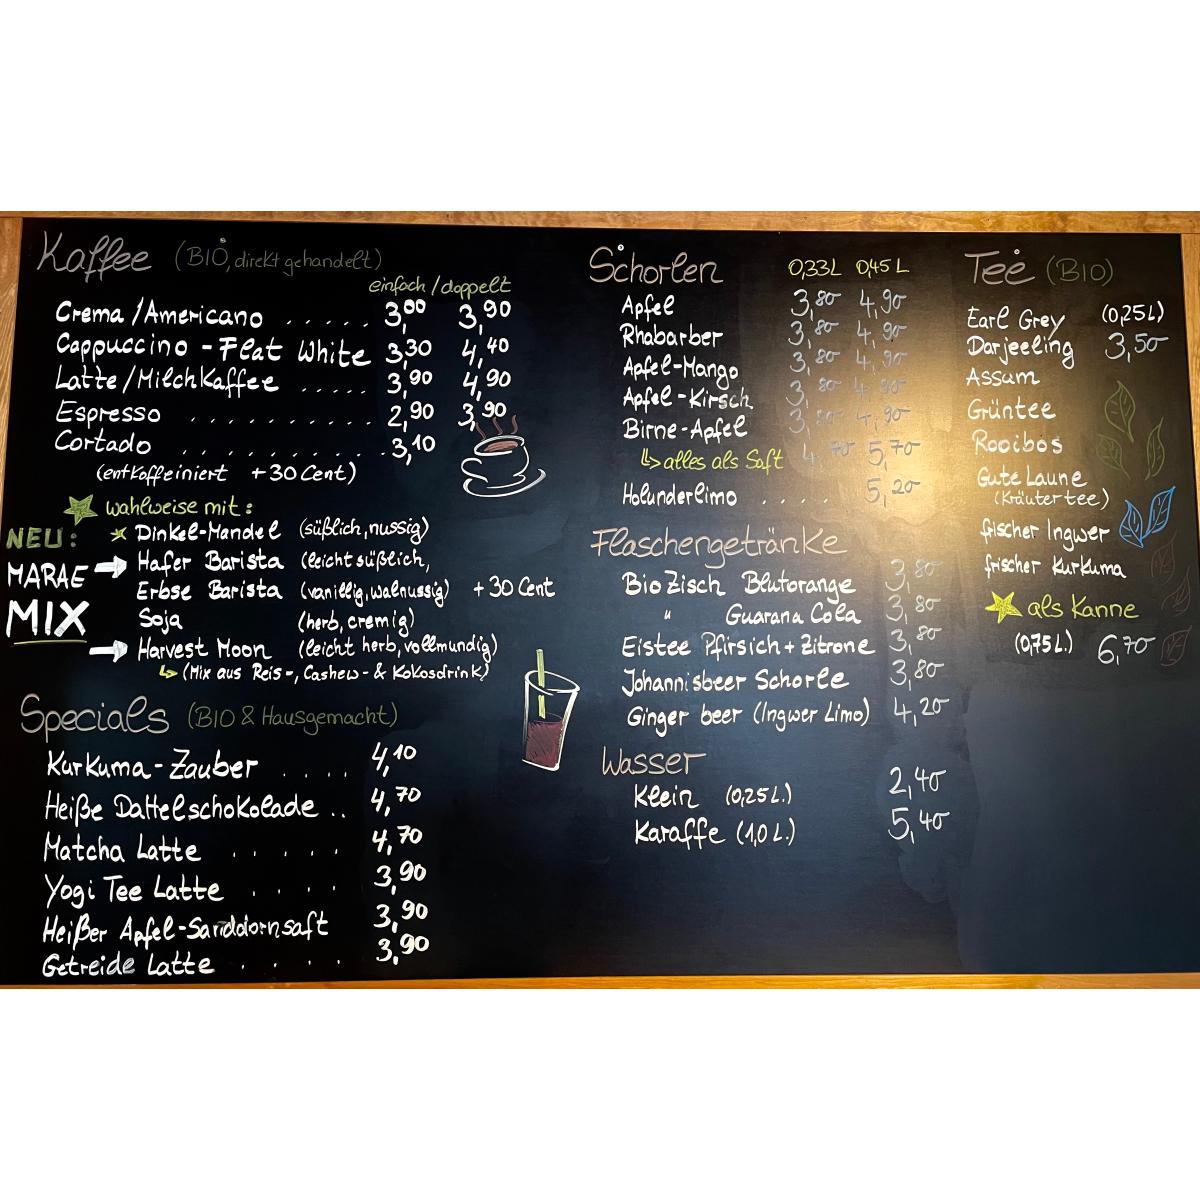 Kaffee (BIO, direkt gehandelt)
einfach / doppelt
Crema / Americano ..... 3,00 3,90
Cappuccino - Flat White 3,30 4,40
Latte / Milchkaffee .... 3,90 4,90
Espresso .......... 2,90 3,90
Cortado .......... 3,10
(entkoffeiniert + 30 Cent)
wahlweise mit:
NEU:
MARAE
MIX
Dinkel-Mandel (süßlich, nussig)
Hafer Barista (leicht süßlich,
Erbse Barista (vanillig, walnussig) + 30 Cent
Soja (herb, cremig)
Harvest Moon (leicht herb, vollmundig)
(Mix aus Reis-, Cashew- & Kokosdrink)
Specials (BIO & Hausgemacht)
Kurkuma-Zauber .... 4,10
Heiße Dattelschokolade .. 4,70
Matcha Latte ..... 4,70
Yogi Tee Latte .... 3,90
Heißer Apfel-Sanddornsaft 3,90
Getreide Latte .... 3,90
Schorlen 0,33L 0,45L
Apfel 3,80 4,90
Rhabarber 3,80 4,90
Apfel-Mango 3,80 4,90
Apfel-Kirsch 3,80 4,90
Birne-Apfel 3,80 4,90
alles als Saft 4,70 5,70
Holunderlimo .... 5,20
Flaschengetränke
Bio Zisch Blutorange 3,80
" Guarana Cola 3,80
Eistee Pfirsich + Zitrone 3,80
Johannisbeer Schorle 3,80
Ginger beer (Ingwer Limo) 4,20
Wasser
Klein (0,25L.) 2,40
Karaffe (1,0 L.) 5,40
Tee (BIO)
Earl Grey (0,25L)
Darjeeling 3,50
Assam
Grüntee
Rooibos
Gute Laune
(Kräutertee)
frischer Ingwer
frischer Kurkuma
als Kanne
(0,75L.) 6,70